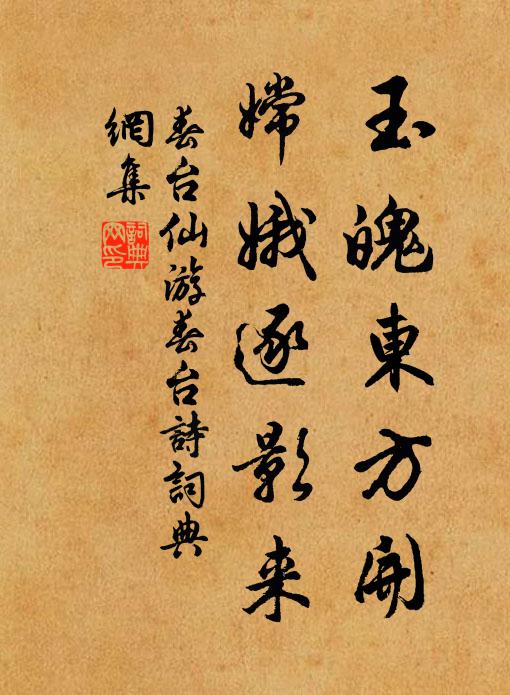 玉魄東方開
嫦娥逐影来
春台仙游春台詩詞典
網集
詞典網印